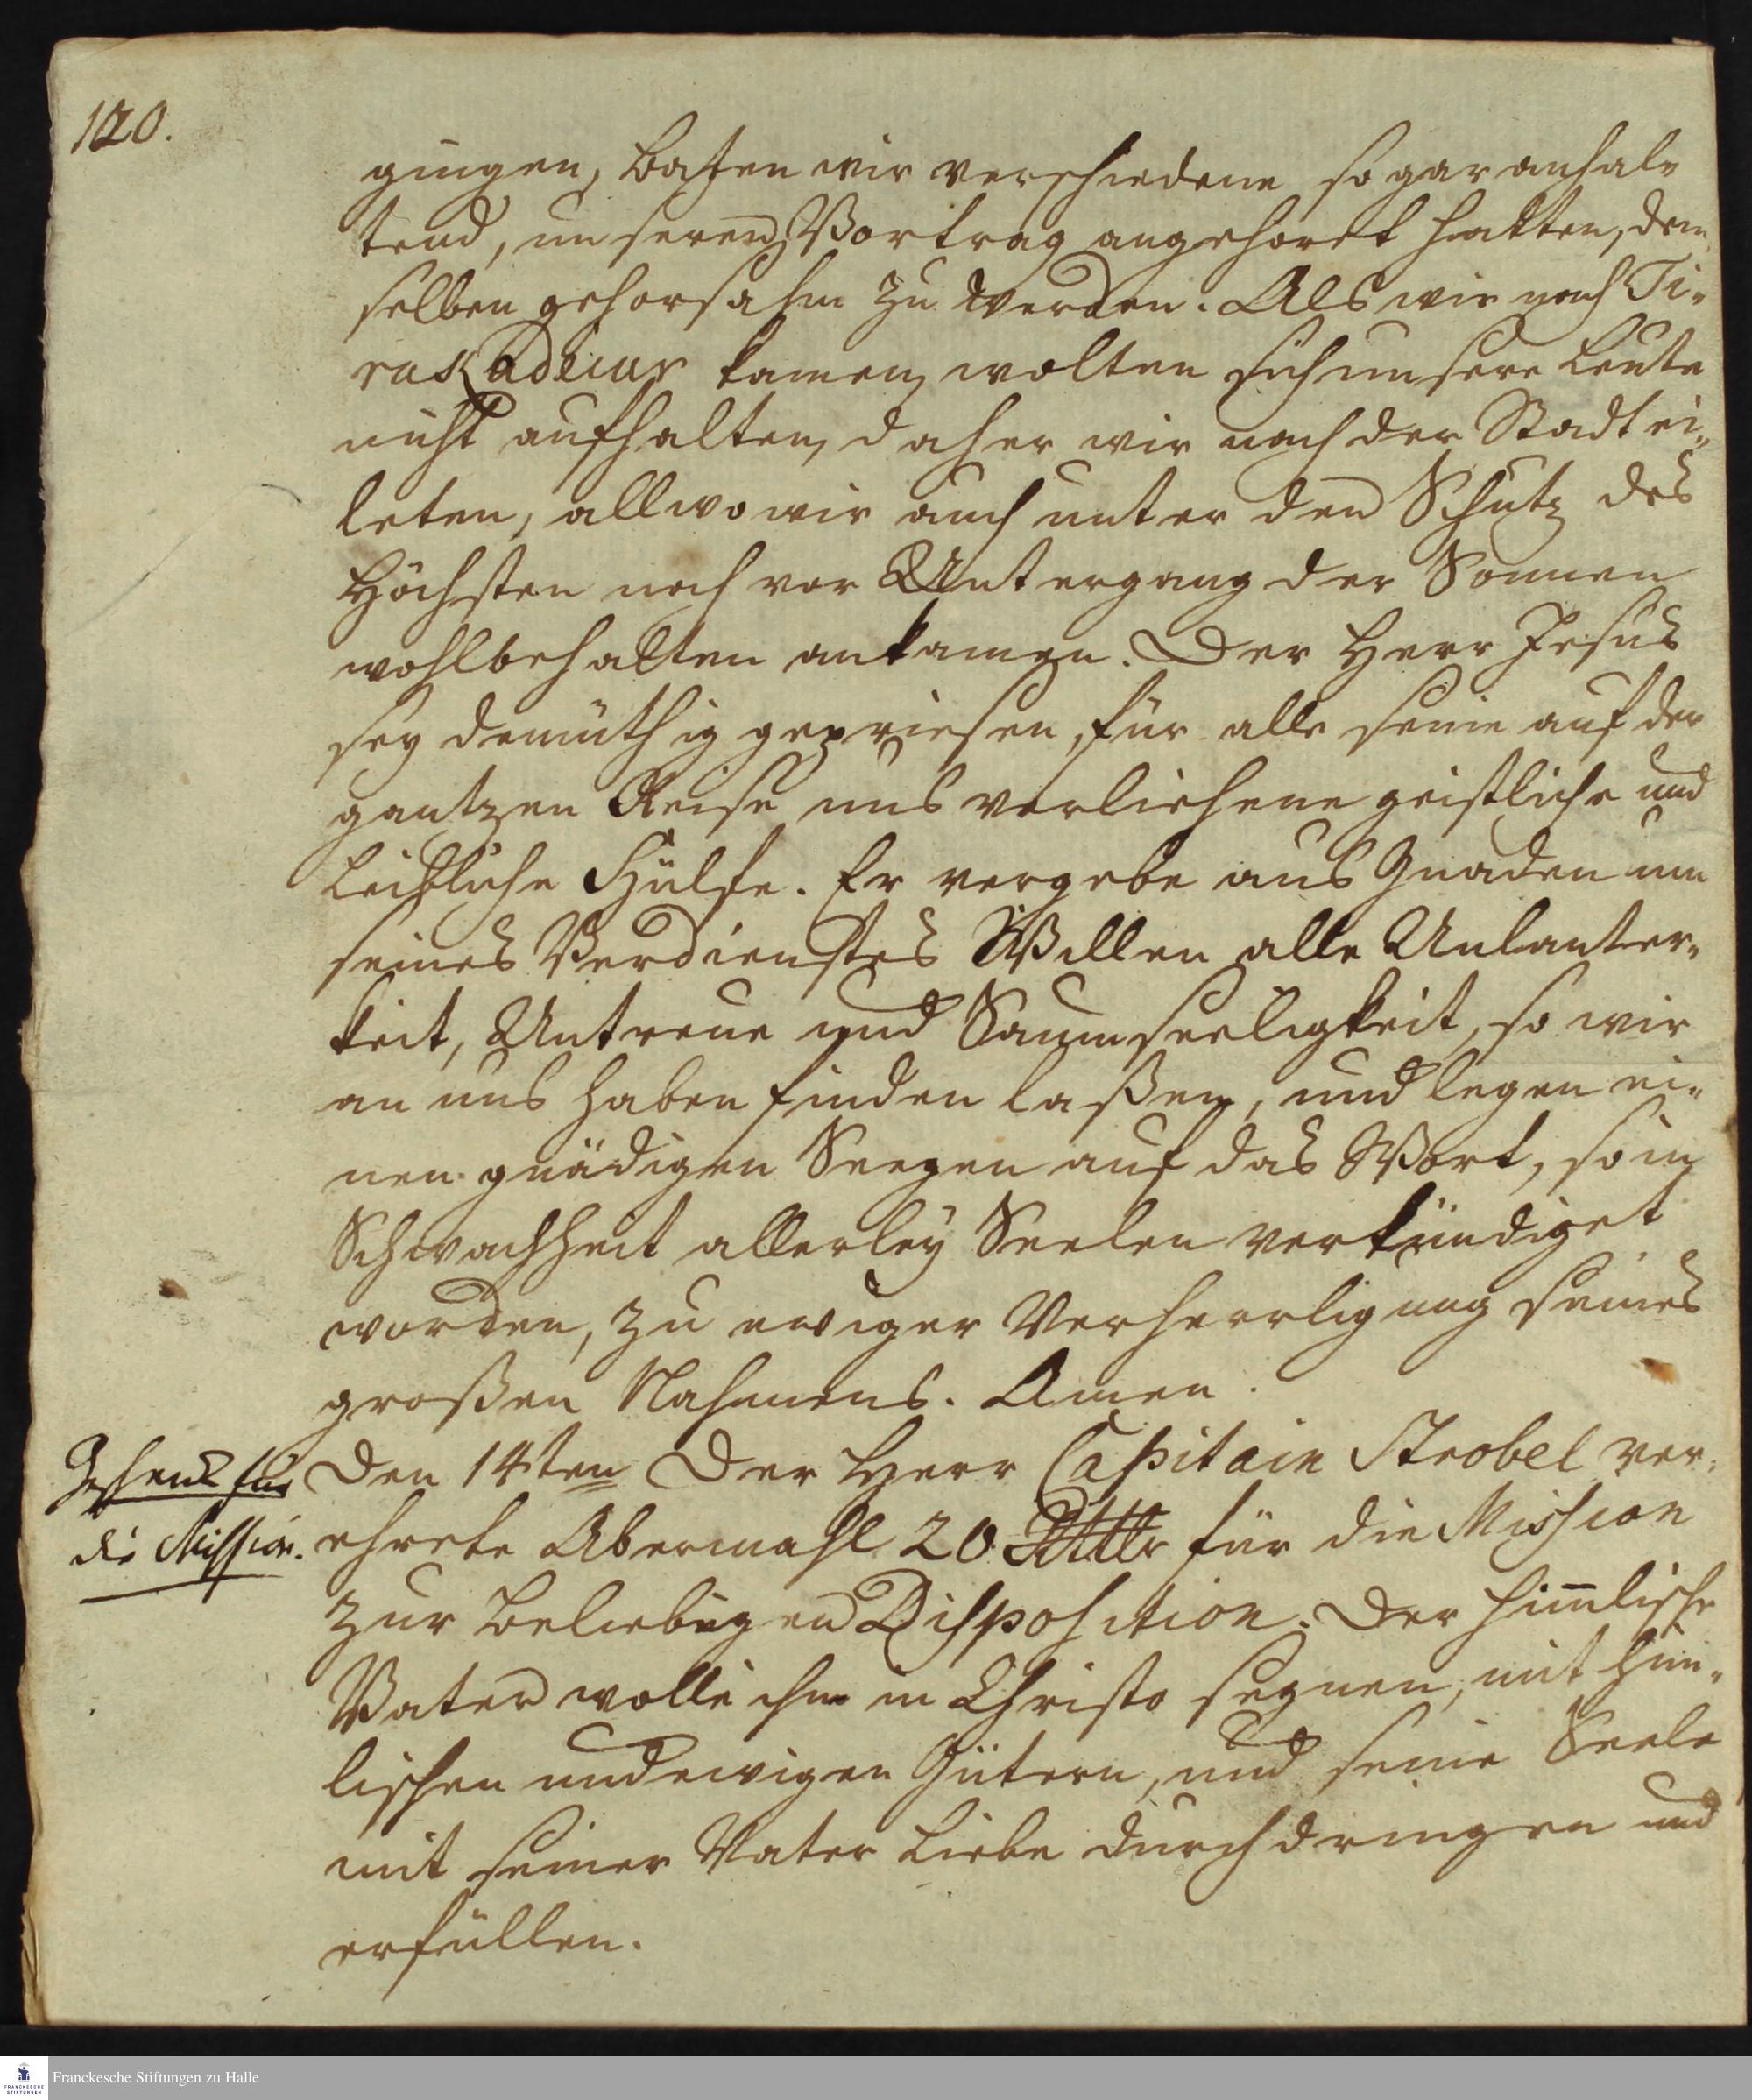 120.
gingen, baten wir verschiedene so gar anhal„
tend, unseren Vortrag angehöret hatten, dem
selben gehorsahm zu werden. Als wir nach Ti„
rukadeiur kamen, wolten sich unsere Leute
nicht aufhalten, daher wir nach der Stadt ei„
leten, allwo wir auch unter den Schutz des
Höchsten noch vor Untergang der Sonnen
wohlbehalten ankamen. Der Herr Jesus
sey demüthig gepriesen, für alle seine auf der
gantzen Reise uns verliehene geistliche und
Leibliche Hülfe. Er vergebe aus Gnaden um
seines Verdienstes Willen alle Unlauter„
keit, Untreue und Saumseeligkeit, so wir
an uns haben finden laßen, und legen ei„
nen gnädigen Seegen auf das Wort, so in
Schwachheit allerley Seelen verkündiget
worden, zu ewiger Verherrligung seines
großen Nahmens. Amen.
Geschenk für
die Mission.
Den 14ten Der Herr Capitain Strobel ver„
ehrete Abermahl 20 für die Mission
zur beliebigen Disposition. Der him̅lische
Vater wolle ihn in Christo segnen, mit him„
lischen und ewigen Gütern, und seine Seele
mit seiner Vater Liebe durchdringen und
erfüllen.
Franckesche Stiftungen zu Halle
FRANCKESCHE
STIFTUNGEN